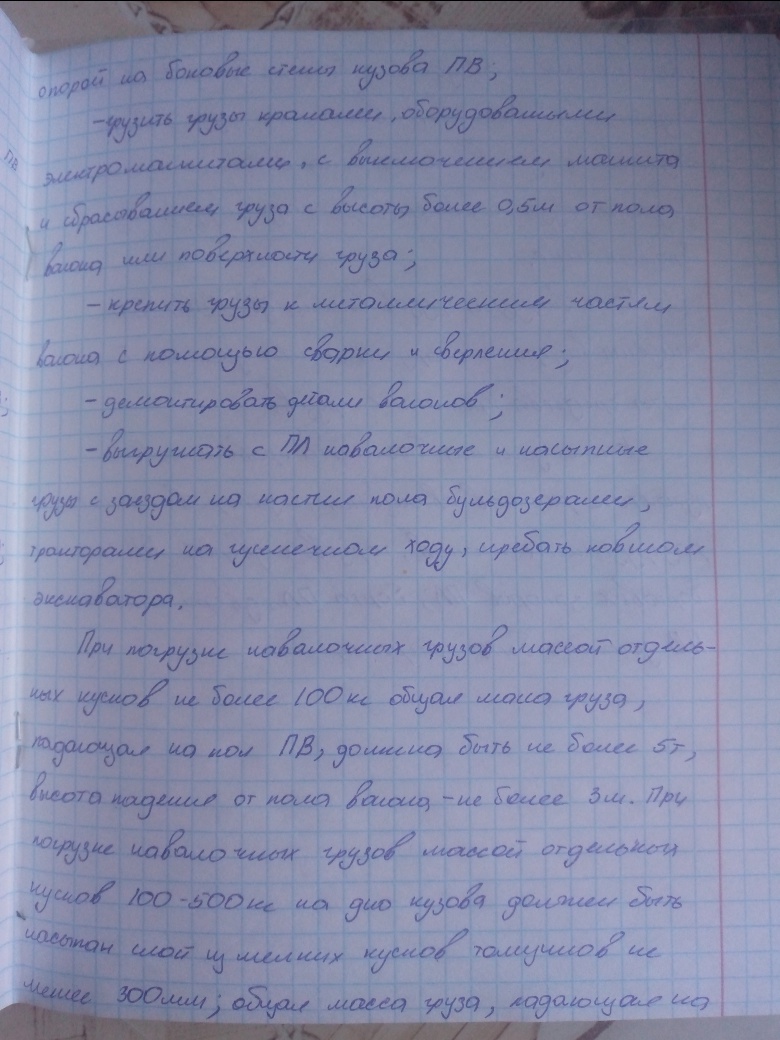 опорой на боковые стены кузова ПВ;
- грузить грузы кранами, оборудованными
электромагнитами, с выключением магнита
и сбрасыванием груза с высоты более 0,5м от пола
вагона или поверхности груза;
- крепить грузы к металлическим частям
вагона с помощью сварки и сверления;
- демонтировать детали вагонов;
- выгружать с ПЛ навалочные и насыпные
грузы с заездом на настил пола бульдозерами,
тракторами на гусеничном ходу, гребать ковшом
экскаватора.
При погрузке навалочных грузов массой отдель-
ных кусков не более 100 кг общая масса груза,
падающая на пол ПВ, должна быть не более 5т,
высота падения от пола вагона - не более 3м. При
погрузке навалочных грузов массой отдельных
кусков 100-500 кг на дно кузова должен быть
насыпан слой из мелких кусков толщиной не
менее 300мм; общая масса груза, падающая на
ПВ